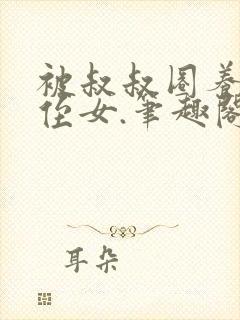 被叔叔圈养
侄女.笔趣阁
耳朵